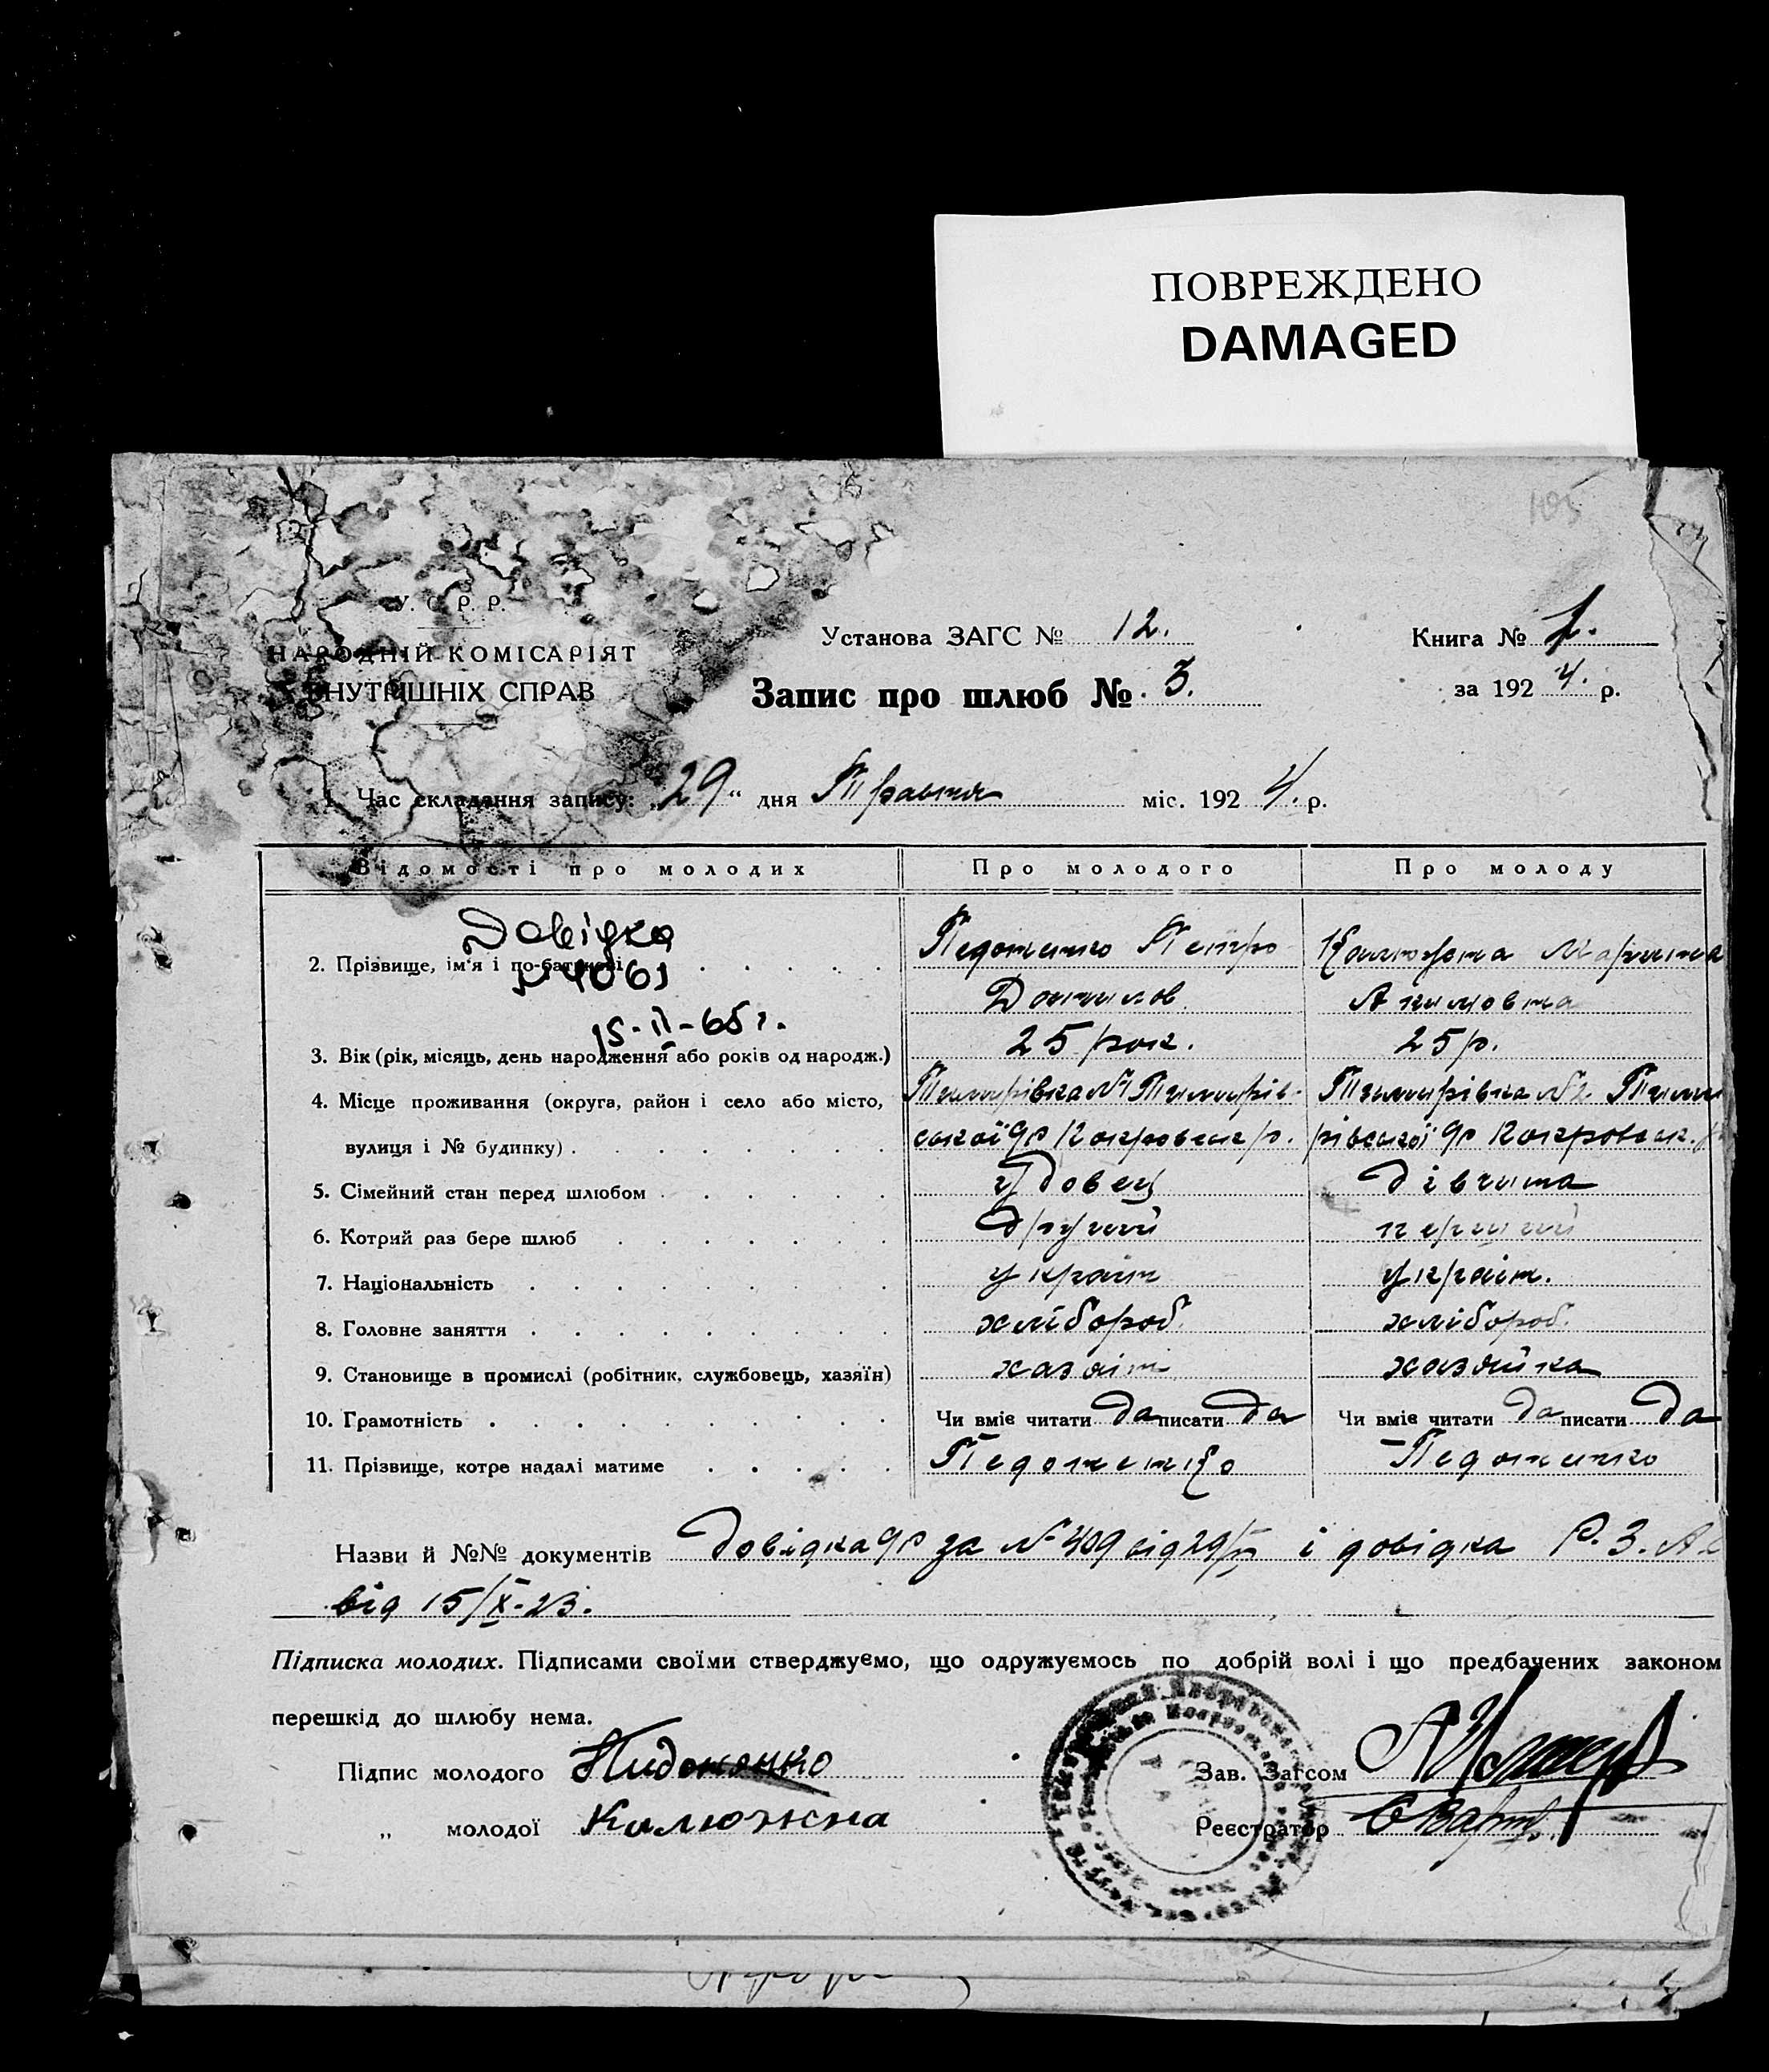 ПОВРЕЖДЕНО
DAMAGED
105
У. С. Р. Р.
НАРОДНІЙ КОМІСАРІЯТ
ВНУТРІШНІХ СПРАВ
Установа ЗАГС № 12.
Книга № 1.
Запис про шлюб № 3.
за 1924. р.
1. Час складання запису: „29“ дня Травня міс. 1924. р.
Відомості про молодих Про молодого Про молоду
Довідка
2. Прізвище, ім'я і по-батькові Педоненко Петро Марина
N 4061
Данилов. Акимовна
15-II-65 г.
3. Вік (рік, місяць, день народження або років од народж.) 25 рок. 25 р.
4. Місце проживання (округа, район і село або місто, Тимирівка №1 Тимирів- Тимирівка №2 Тими
вулиця і № будинку) ської с/р Покровськ р. рівської с/р Покровськ. р
5. Сімейний стан перед шлюбом удовец дівчина
6. Котрий раз бере шлюб другий перший
7. Національність україн україн.
8. Головне заняття хлібороб. хлібороб.
9. Становище в промислі (робітник, службовець, хазяїн) хазяїн хазяйка
10. Грамотність Чи вміє читати да писати да Чи вміє читати да писати да
11. Прізвище, котре надалі матиме Педоненко Педоненко
Назви й №№ документів Довідка с/р за № 409 від 29/V і довідка Р. З. А
від 15/X-23.
Підписка молодих. Підписами своїми стверджуємо, що одружуємось по добрій волі і що предбачених законом
перешкід до шлюбу нема.
Підпис молодого Пидоненко Зав. Загсом
„ молодої Калюжна Реєстратор